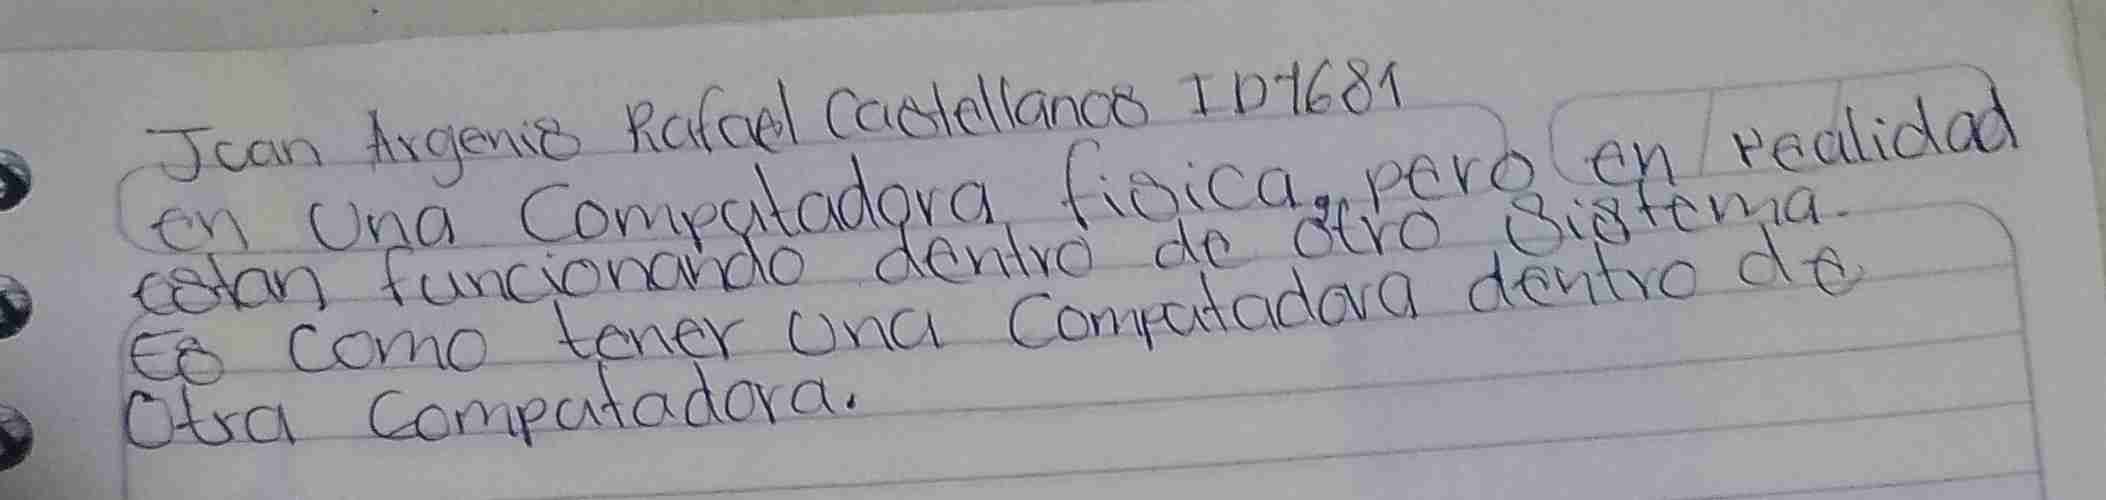 Jean Argenis Rafael Castellanos ID1681
en una Computadora fisica, pero en realidad
estan funcionando dentro de otro Sistema.
Es como tener una Computadora dentro de
Otra Computadora.